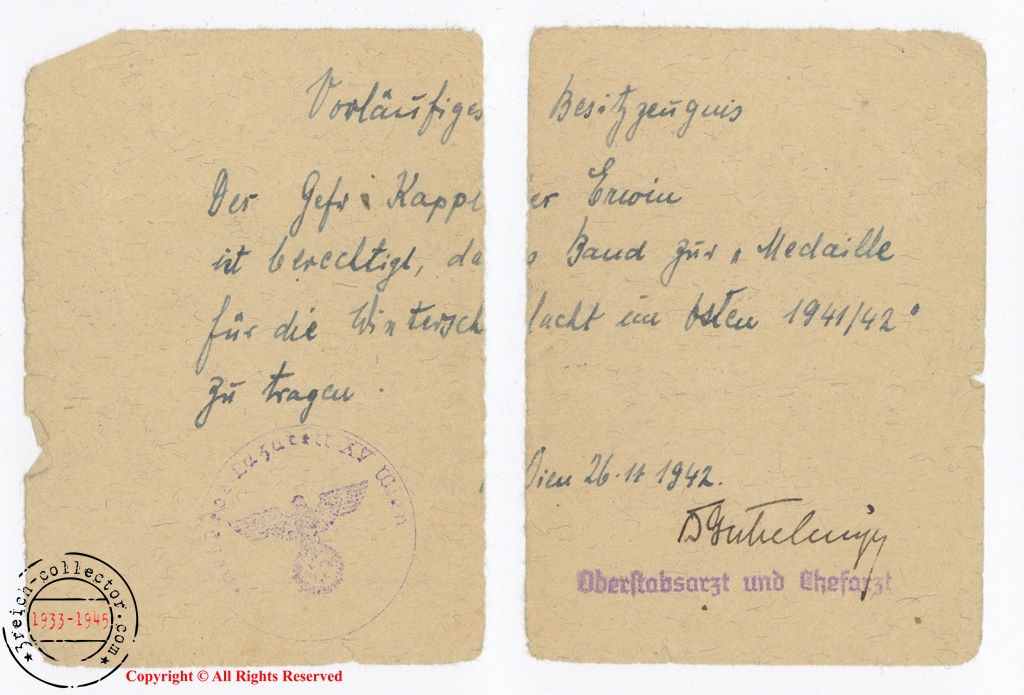 Vorläufiges Besitzzeugnis
Der Gefr. Kappl er Erwin
ist berechtigt, das Band zur „Medaille
für die Winterschlacht im Osten 1941/42"
zu tragen.
Lazarett XV Wien
Wien 26.11.1942.
Oberstabsarzt und Chefarzt
3reich-collector.com
1933-1945
Copyright © All Rights Reserved